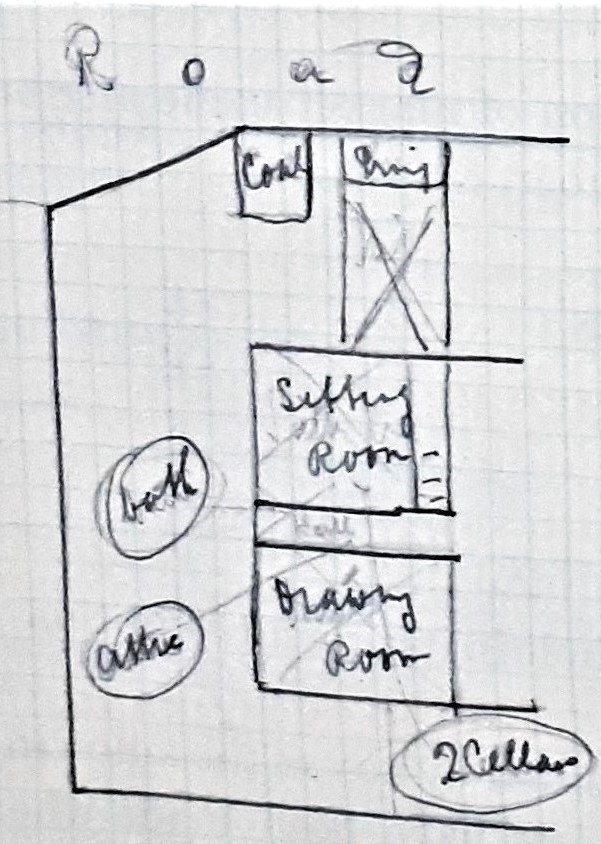 Road
Coal
Sitting
Room
Bath
Hall
Drawing
Room
Attic
2 Cellars